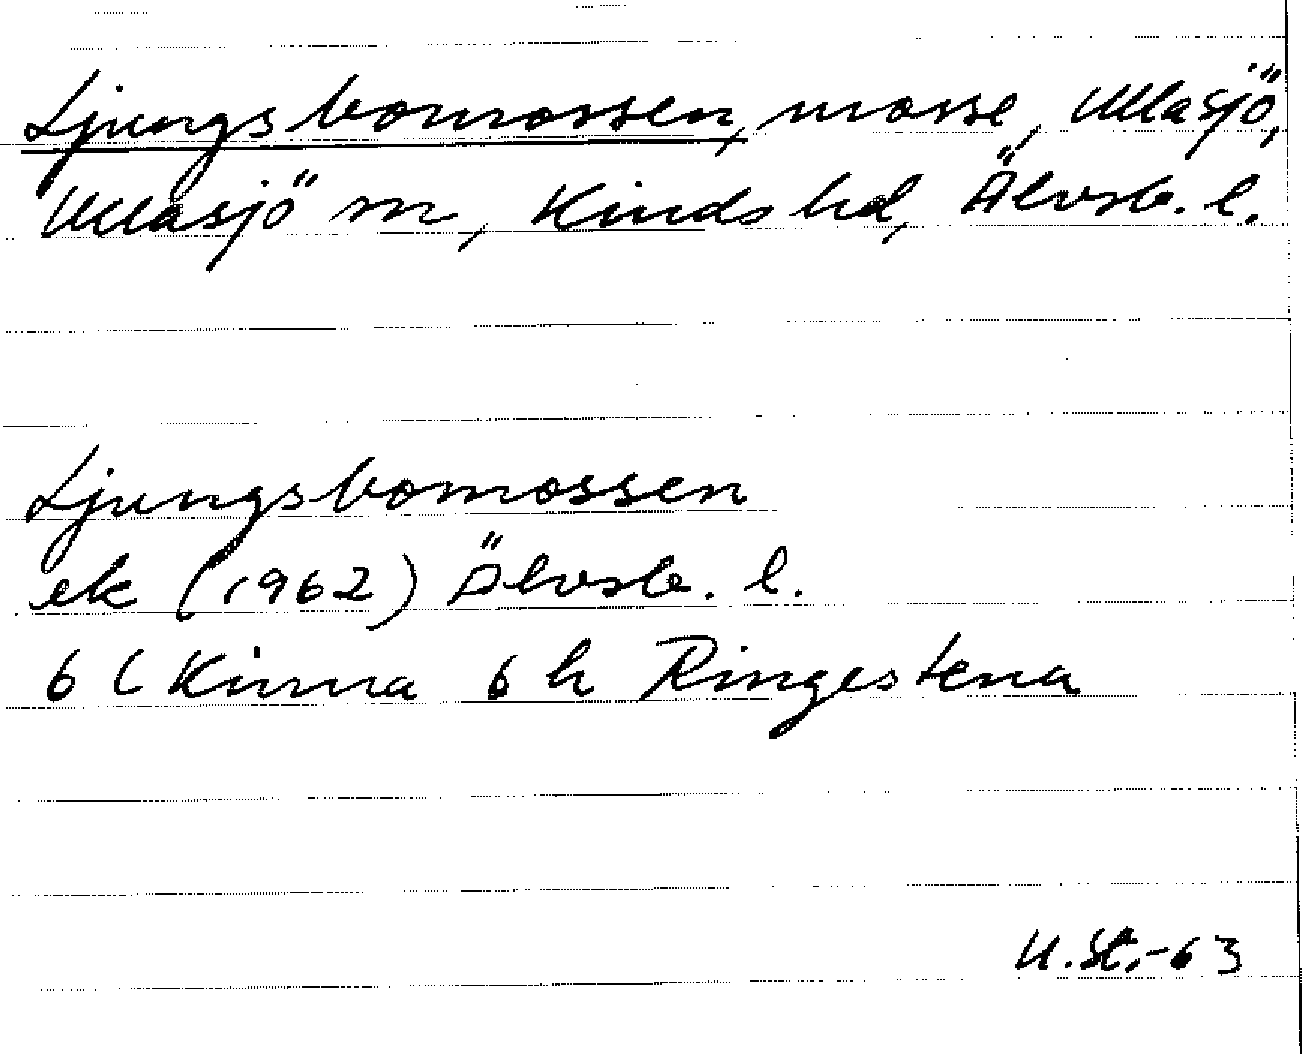 Ljungsbomossen, mosse, Ullasjö,
Ullasjö sn, Kinds hd, Älvsb. l.
Ljungsbomossen
ek (1962) Älvsb. l.
6 C Kinna 6 h Ringestena
U.St.-63